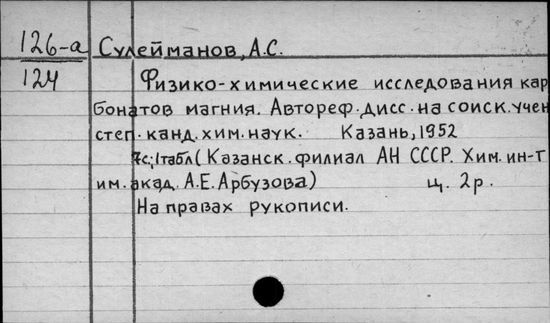 126-а Сулейманов, А.С.
124 Физико-химические исследования кар
бонатов магния. Автореф. дисс. на соиск. учен
степ. канд. хим. наук. Казань, 1952
7с; 1табл (Казанск. филиал АН СССР. Хим. ин-т
им. акад. А.Е. Арбузова) ц. 2р.
На правах рукописи.